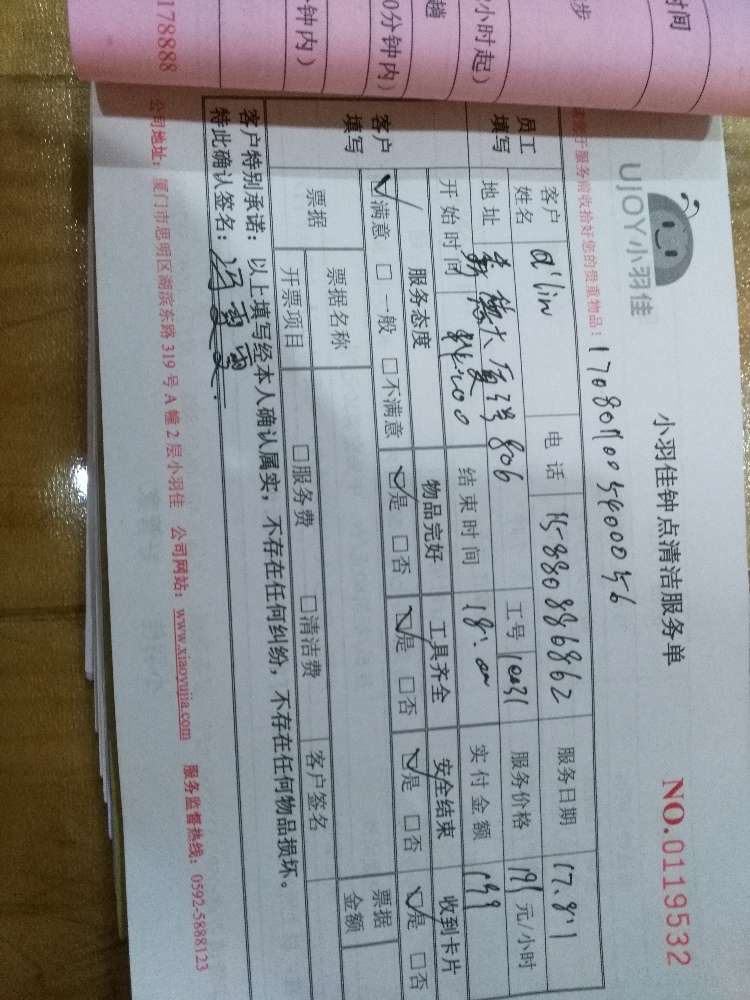 时间
步
小时起)
趟
0分钟内)
钟内)
178888
UJOY小羽佳
小羽佳钟点清洁服务单
NO.0119532
于服务前收拾好您的贵重物品!
员工
填写
客户
姓名
a'lin
电话
15880886862
服务日期
17.8.1
地址
806
工号
10031
服务价格
元/小时
开始时间
结束时间
18:00
实付金额
客户
填写
服务态度
物品完好
工具齐全
安全结束
收到卡片
☑满意 □一般 □不满意
☑是 □否
☑是 □否
☑是 □否
☑是 □否
票据
票据名称
票据
金额
开票项目
□服务费 □清洁费
客户签名
客户特别承诺:以上填写经本人确认属实,不存在任何纠纷,不存在任何物品损坏。
特此确认签名:
公司地址:厦门市思明区湖滨东路 319 号 A 幢 2 层小羽佳 公司网站:www.xiaoyujia.com 服务监督热线:0592-5888123